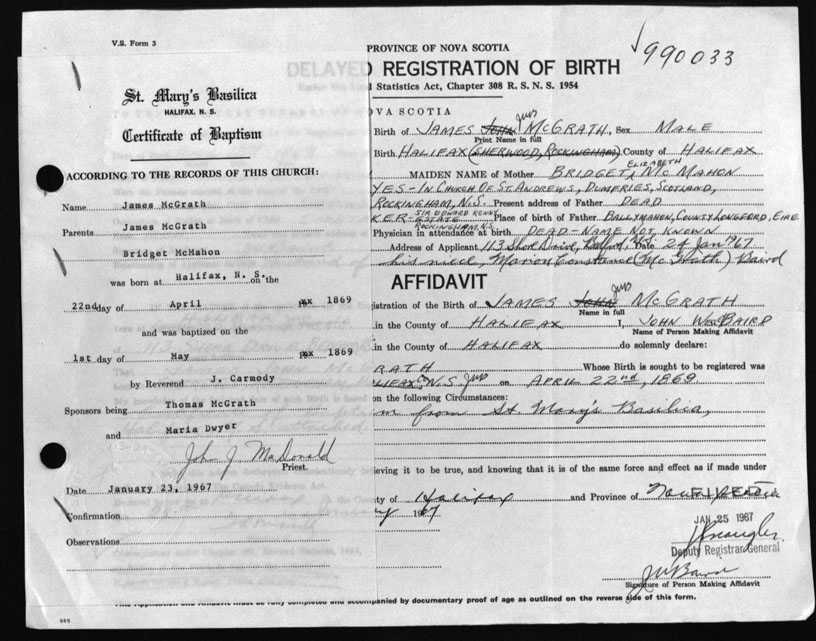 V.S. Form 3
St. Mary's Basilica
HALIFAX, N. S.
Certificate of Baptism
ACCORDING TO THE RECORDS OF THIS CHURCH:
Name James McGrath
Parents James McGrath
Bridget McMahon
was born at Halifax, N. S. on the
22nd day of April 1869
and was baptized on the
1st day of May 1869
by Reverend J. Carmody
Sponsors being Thomas McGrath
and Maria Dwyer
John J MacDonald
Priest.
Date January 23, 1967
Confirmation
Observations
PROVINCE OF NOVA SCOTIA
990033
DELAYED REGISTRATION OF BIRTH
Statistics Act, Chapter 308 R. S. N. S. 1954
OVA SCOTIA
Birth of JAMES JOHN McGRATH, Sex MALE
Print Name in full
Birth HALIFAX (SHERWOOD, ROCKINGHAM) County of HALIFAX
MAIDEN NAME of Mother BRIDGET ELIZABETH McMAHON
YES - IN CHURCH OF ST. ANDREWS, DUMFRIES, SCOTLAND,
ROCKINGHAM, N.S. Present address of Father DEAD
KER - SIR EDWARD KENNY ESTATE ROCKINGHAM, N.S. Place of birth of Father BALLYMAHON, COUNTY LONGFORD, EIRE
Physician in attendance at birth DEAD - NAME NOT KNOWN
Address of Applicant 113 Shore Drive, Bedford, N.S. Date 24 Jan 1967
his niece, Marion Constance (McGrath) Baird
AFFIDAVIT
istration of the Birth of JAMES JOHN McGRATH
Name in full
in the County of HALIFAX I, JOHN BAIRD
Name of Person Making Affidavit
in the County of HALIFAX do solemnly declare:
RATH Whose Birth is sought to be registered was
LIFAX, N.S. on APRIL 22nd, 1869.
on the following Circumstances:
m from St. Mary's Basilica,
ieving it to be true, and knowing that it is of the same force and effect as if made under
ty of Halifax and Province of Nova Scotia
FILED
19 67
JAN 25 1967
Deputy Registrar General
J W Baird
Signature of Person Making Affidavit
This Application and Affidavit must be fully completed and accompanied by documentary proof of age as outlined on the reverse side of this form.